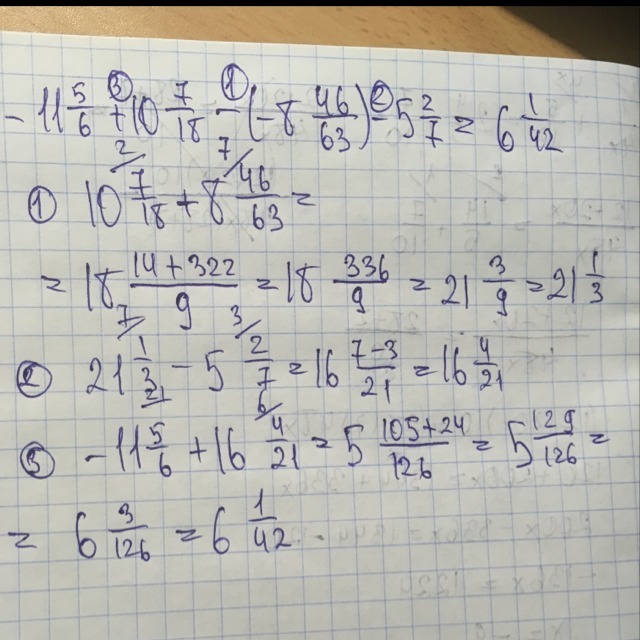 - 11 5/6 + 10 7/18 - (-8 46/63) - 5 2/7 = 6 1/42
① 10 7/18 + 8 46/63 =
= 18 (14+322)/9 = 18 336/9 = 21 3/9 = 21 1/3
② 21 1/3 - 5 2/7 = 16 (7-3)/21 = 16 4/21
③ -11 5/6 + 16 4/21 = 5 (105+24)/126 = 5 129/126 =
= 6 3/126 = 6 1/42